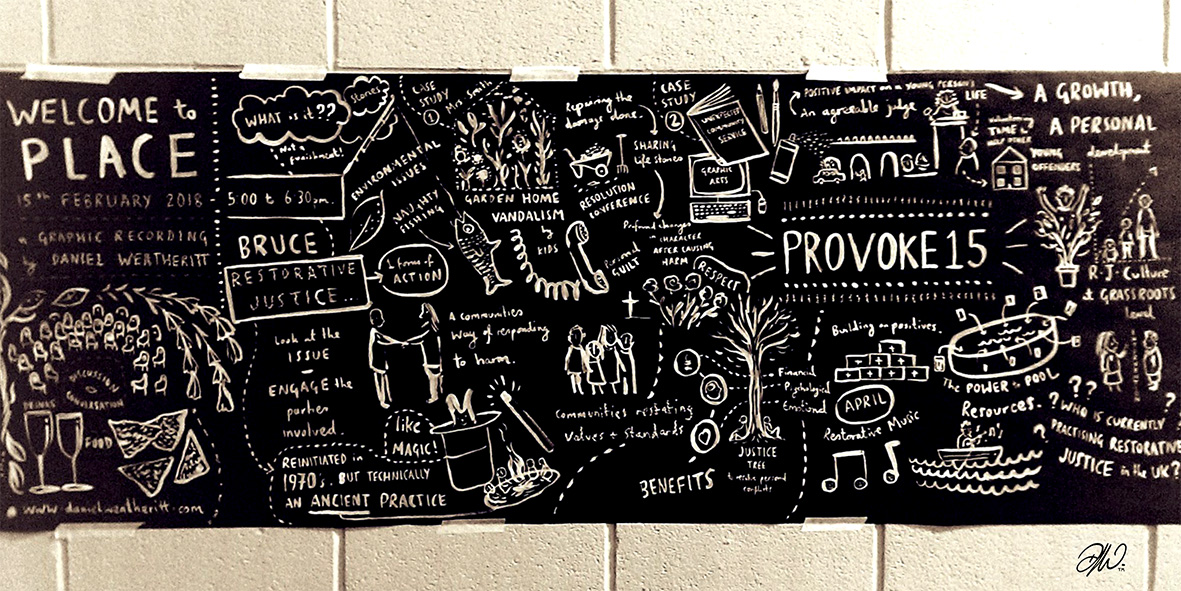 WELCOME to
PLACE
15th FEBRUARY 2018
a GRAPHIC RECORDING
by DANIEL WEATHERITT
DISCUSSION
CONVERSATION
DRINKS
FOOD
www.danielweatheritt.com
WHAT is it??
Stories
Not a
Punishment!
5:00 to 6:30pm.
BRUCE
RESTORATIVE
JUSTICE...
ACTION
Look at the
ISSUE
ENGAGE the
parties
involved
REINITIATED in
1970's. BUT TECHNICALLY
AN ANCIENT PRACTICE
like
MAGIC!
CASE
STUDY
1
Mrs. Smith
ENVIRONMENTAL
ISSUES
NAUGHTY
FISHING
GARDEN HOME
VANDALISM
by
KIDS
A communities
way of responding
to harm.
Repairing the
damage done.
SHARING
life stories
RESOLUTION
CONFERENCE
Profound changes
in CHARACTER
AFTER CAUSING
HARM
Personal
GUILT
Communities restating
Values + Standards
CASE
STUDY
2
UNEXPECTED
COMMUNITY
SERVICE
GRAPHIC
ARTS
RESPECT
Financial
Psychological
Emotional
BENEFITS
JUSTICE
TREE
to resolve personal
conflicts
POSITIVE IMPACT on a YOUNG PERSON'S
LIFE
An agreeable judge
YOUNG
OFFENDERS
A GROWTH,
A PERSONAL
development
PROVOKE15
R.J. Culture
at GRASSROOTS
level
Building on positives.
APRIL
Restorative Music
The POWER to POOL
Resources.
? ?
?
?
?
WHO IS CURRENTLY
PRACTISING RESTORATIVE
JUSTICE in the UK?